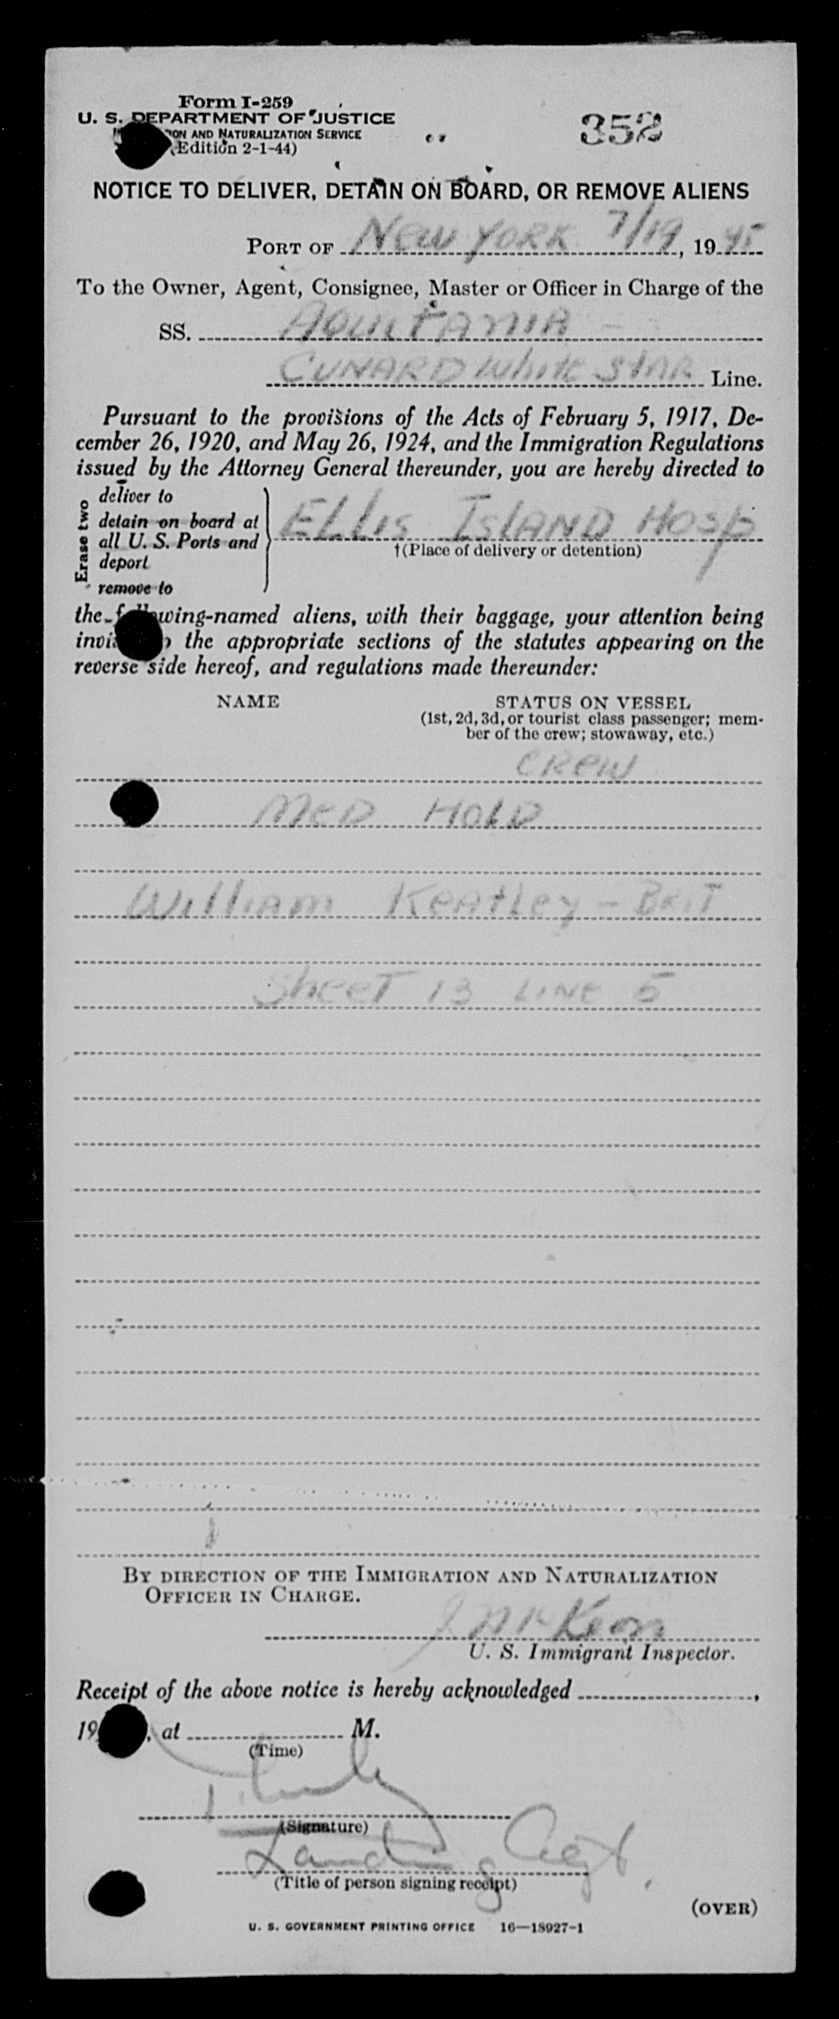 Form I-259
U. S. DEPARTMENT OF JUSTICE
352
AND NATURALIZATION SERVICE
(Edition 2-1-44)
NOTICE TO DELIVER, DETAIN ON BOARD, OR REMOVE ALIENS
PORT OF New York 7/19, 1945
To the Owner, Agent, Consignee, Master or Officer in Charge of the
SS. Aquitania -
Cunard White Star Line.
Pursuant to the provisions of the Acts of February 5, 1917, De-
cember 26, 1920, and May 26, 1924, and the Immigration Regulations
issued by the Attorney General thereunder, you are hereby directed to
Erase two
deliver to
detain on board at
all U. S. Ports and
deport
remove to
Ellis Island Hosp
†(Place of delivery or detention)
the following-named aliens, with their baggage, your attention being
the appropriate sections of the statutes appearing on the
reverse side hereof, and regulations made thereunder:
NAME
STATUS ON VESSEL
(1st, 2d, 3d, or tourist class passenger; mem-
ber of the crew; stowaway, etc.)
Crew
Med Hold
William Keatley - Brit
Sheet 13 Line 5
BY DIRECTION OF THE IMMIGRATION AND NATURALIZATION
OFFICER IN CHARGE.
J McKeon
U. S. Immigrant Inspector.
Receipt of the above notice is hereby acknowledged ,
19 , at M.
(Time)
(Signature)
Landing Agt.
(Title of person signing receipt)
(OVER)
U. S. GOVERNMENT PRINTING OFFICE 16—18927-1